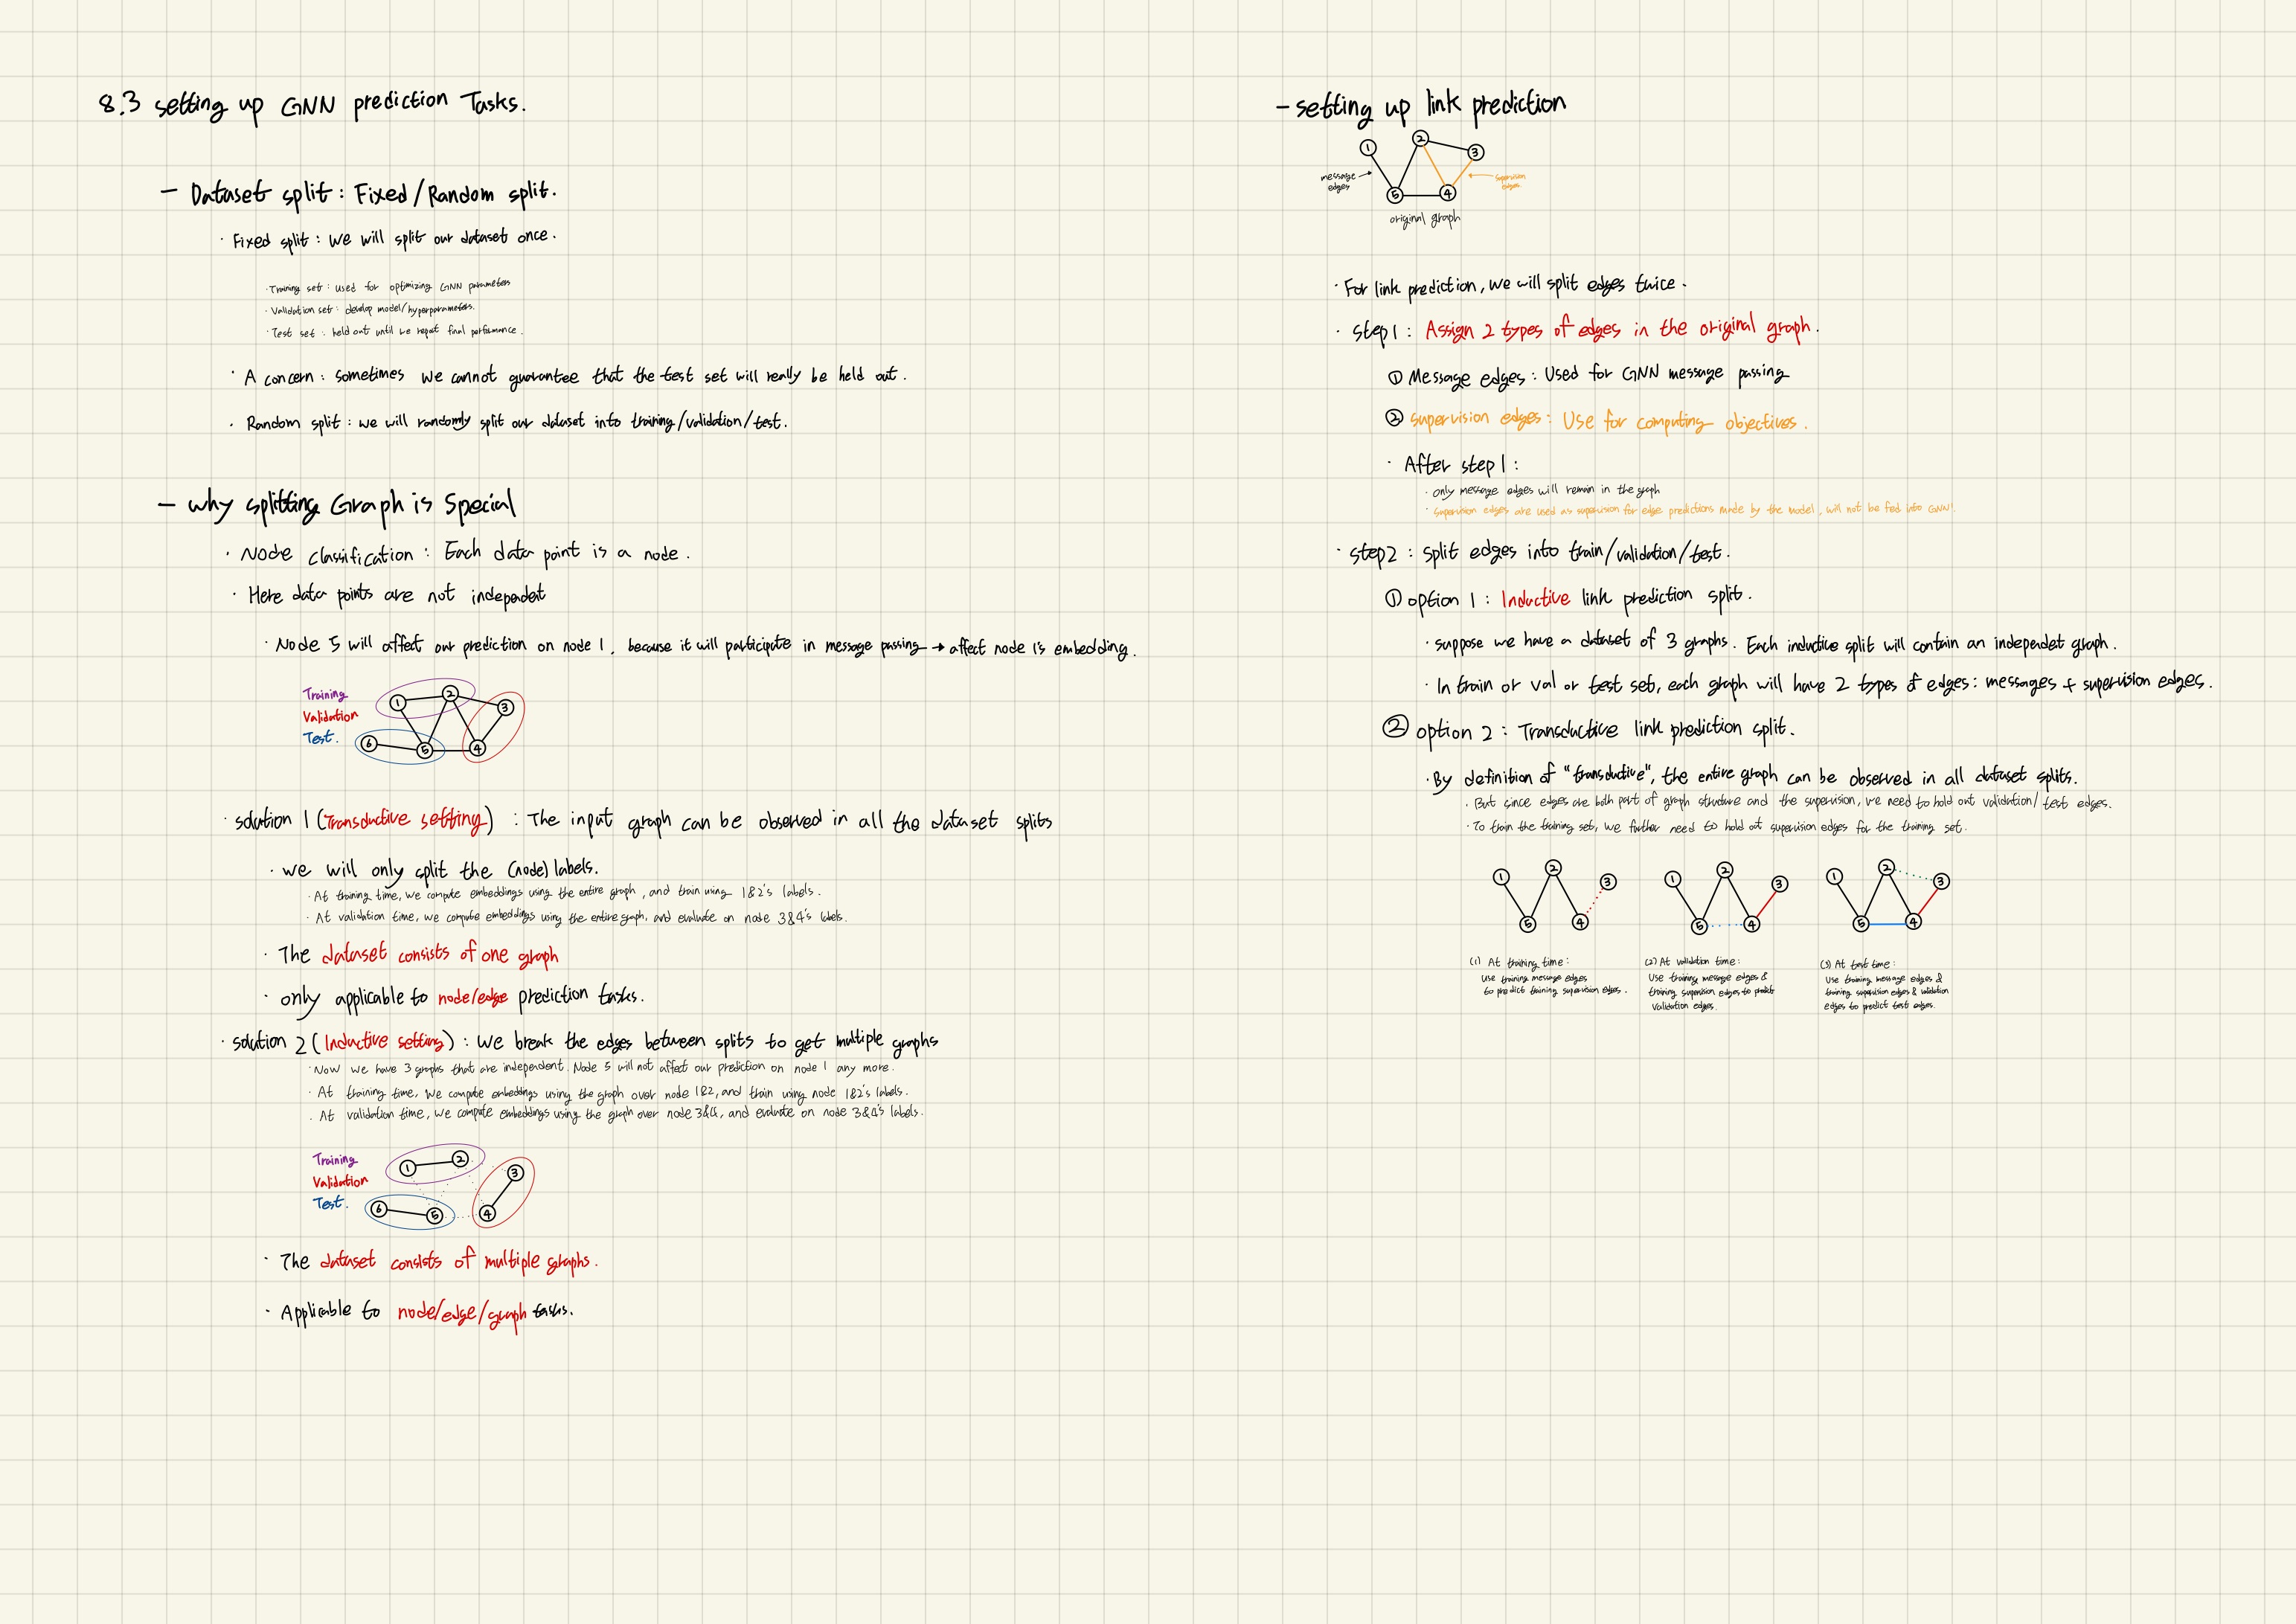 8.3 setting up GNN prediction Tasks.
- Dataset split : Fixed/Random split.
· Fixed split : we will split our dataset once.
· Training set : used for optimizing GNN parameters
· Validation set : develop model/hyperparameters.
· Test set : held out until we report final performance.
· A concern : sometimes we cannot guarantee that the test set will really be held out.
· Random split : we will randomly split our dataset into training/validation/test.
- why splitting Graph is Special
· Node classification : Each data point is a node.
· Here data points are not independent
· Node 5 will affect our prediction on node 1, because it will participate in message passing → affect node 1's embedding.
Training
Validation
Test.
1
2
3
6
5
4
· solution 1 (Transductive setting) : The input graph can be observed in all the dataset splits
· we will only split the (node) labels.
· At training time, we compute embeddings using the entire graph, and train using 1&2's labels.
· At validation time, we compute embeddings using the entire graph, and evaluate on node 3&4's labels.
· The dataset consists of one graph
· only applicable to node/edge prediction tasks.
· solution 2 (Inductive setting) : we break the edges between splits to get multiple graphs
· Now we have 3 graphs that are independent. Node 5 will not affect our prediction on node 1 any more.
· At training time, we compute embeddings using the graph over node 1&2, and train using node 1&2's labels.
· At validation time, we compute embeddings using the graph over node 3&4, and evaluate on node 3&4's labels.
Training
Validation
Test.
1
2
3
6
5
4
· The dataset consists of multiple graphs.
· Applicable to node/edge/graph tasks.
- setting up link prediction
1
2
3
message edges
supervision edges
5
4
original graph
· For link prediction, we will split edges twice.
· step1 : Assign 2 types of edges in the original graph.
① Message edges : Used for GNN message passing
② supervision edges : Use for computing objectives.
· After step1 :
· only message edges will remain in the graph
· supervision edges are used as supervision for edge predictions made by the model, will not be fed into GNN!
· step2 : split edges into train/validation/test.
① option 1 : Inductive link prediction split.
· suppose we have a dataset of 3 graphs. Each inductive split will contain an independet graph.
· In train or val or test set, each graph will have 2 types of edges : messages + supervision edges.
② option 2 : Transductive link prediction split.
· By definition of "transductive", the entire graph can be observed in all dataset splits.
· But since edges are both part of graph structure and the supervision, we need to hold out validation/test edges.
· To train the training set, we further need to hold out supervision edges for the training set.
1
2
3
5
4
1
2
3
5
4
1
2
3
5
4
(1) At training time :
use training message edges
to predict training supervision edges.
(2) At validation time :
Use training message edges &
training supervision edges to predict
validation edges.
(3) At test time :
Use training message edges &
training supervision edges & validation
edges to predict test edges.